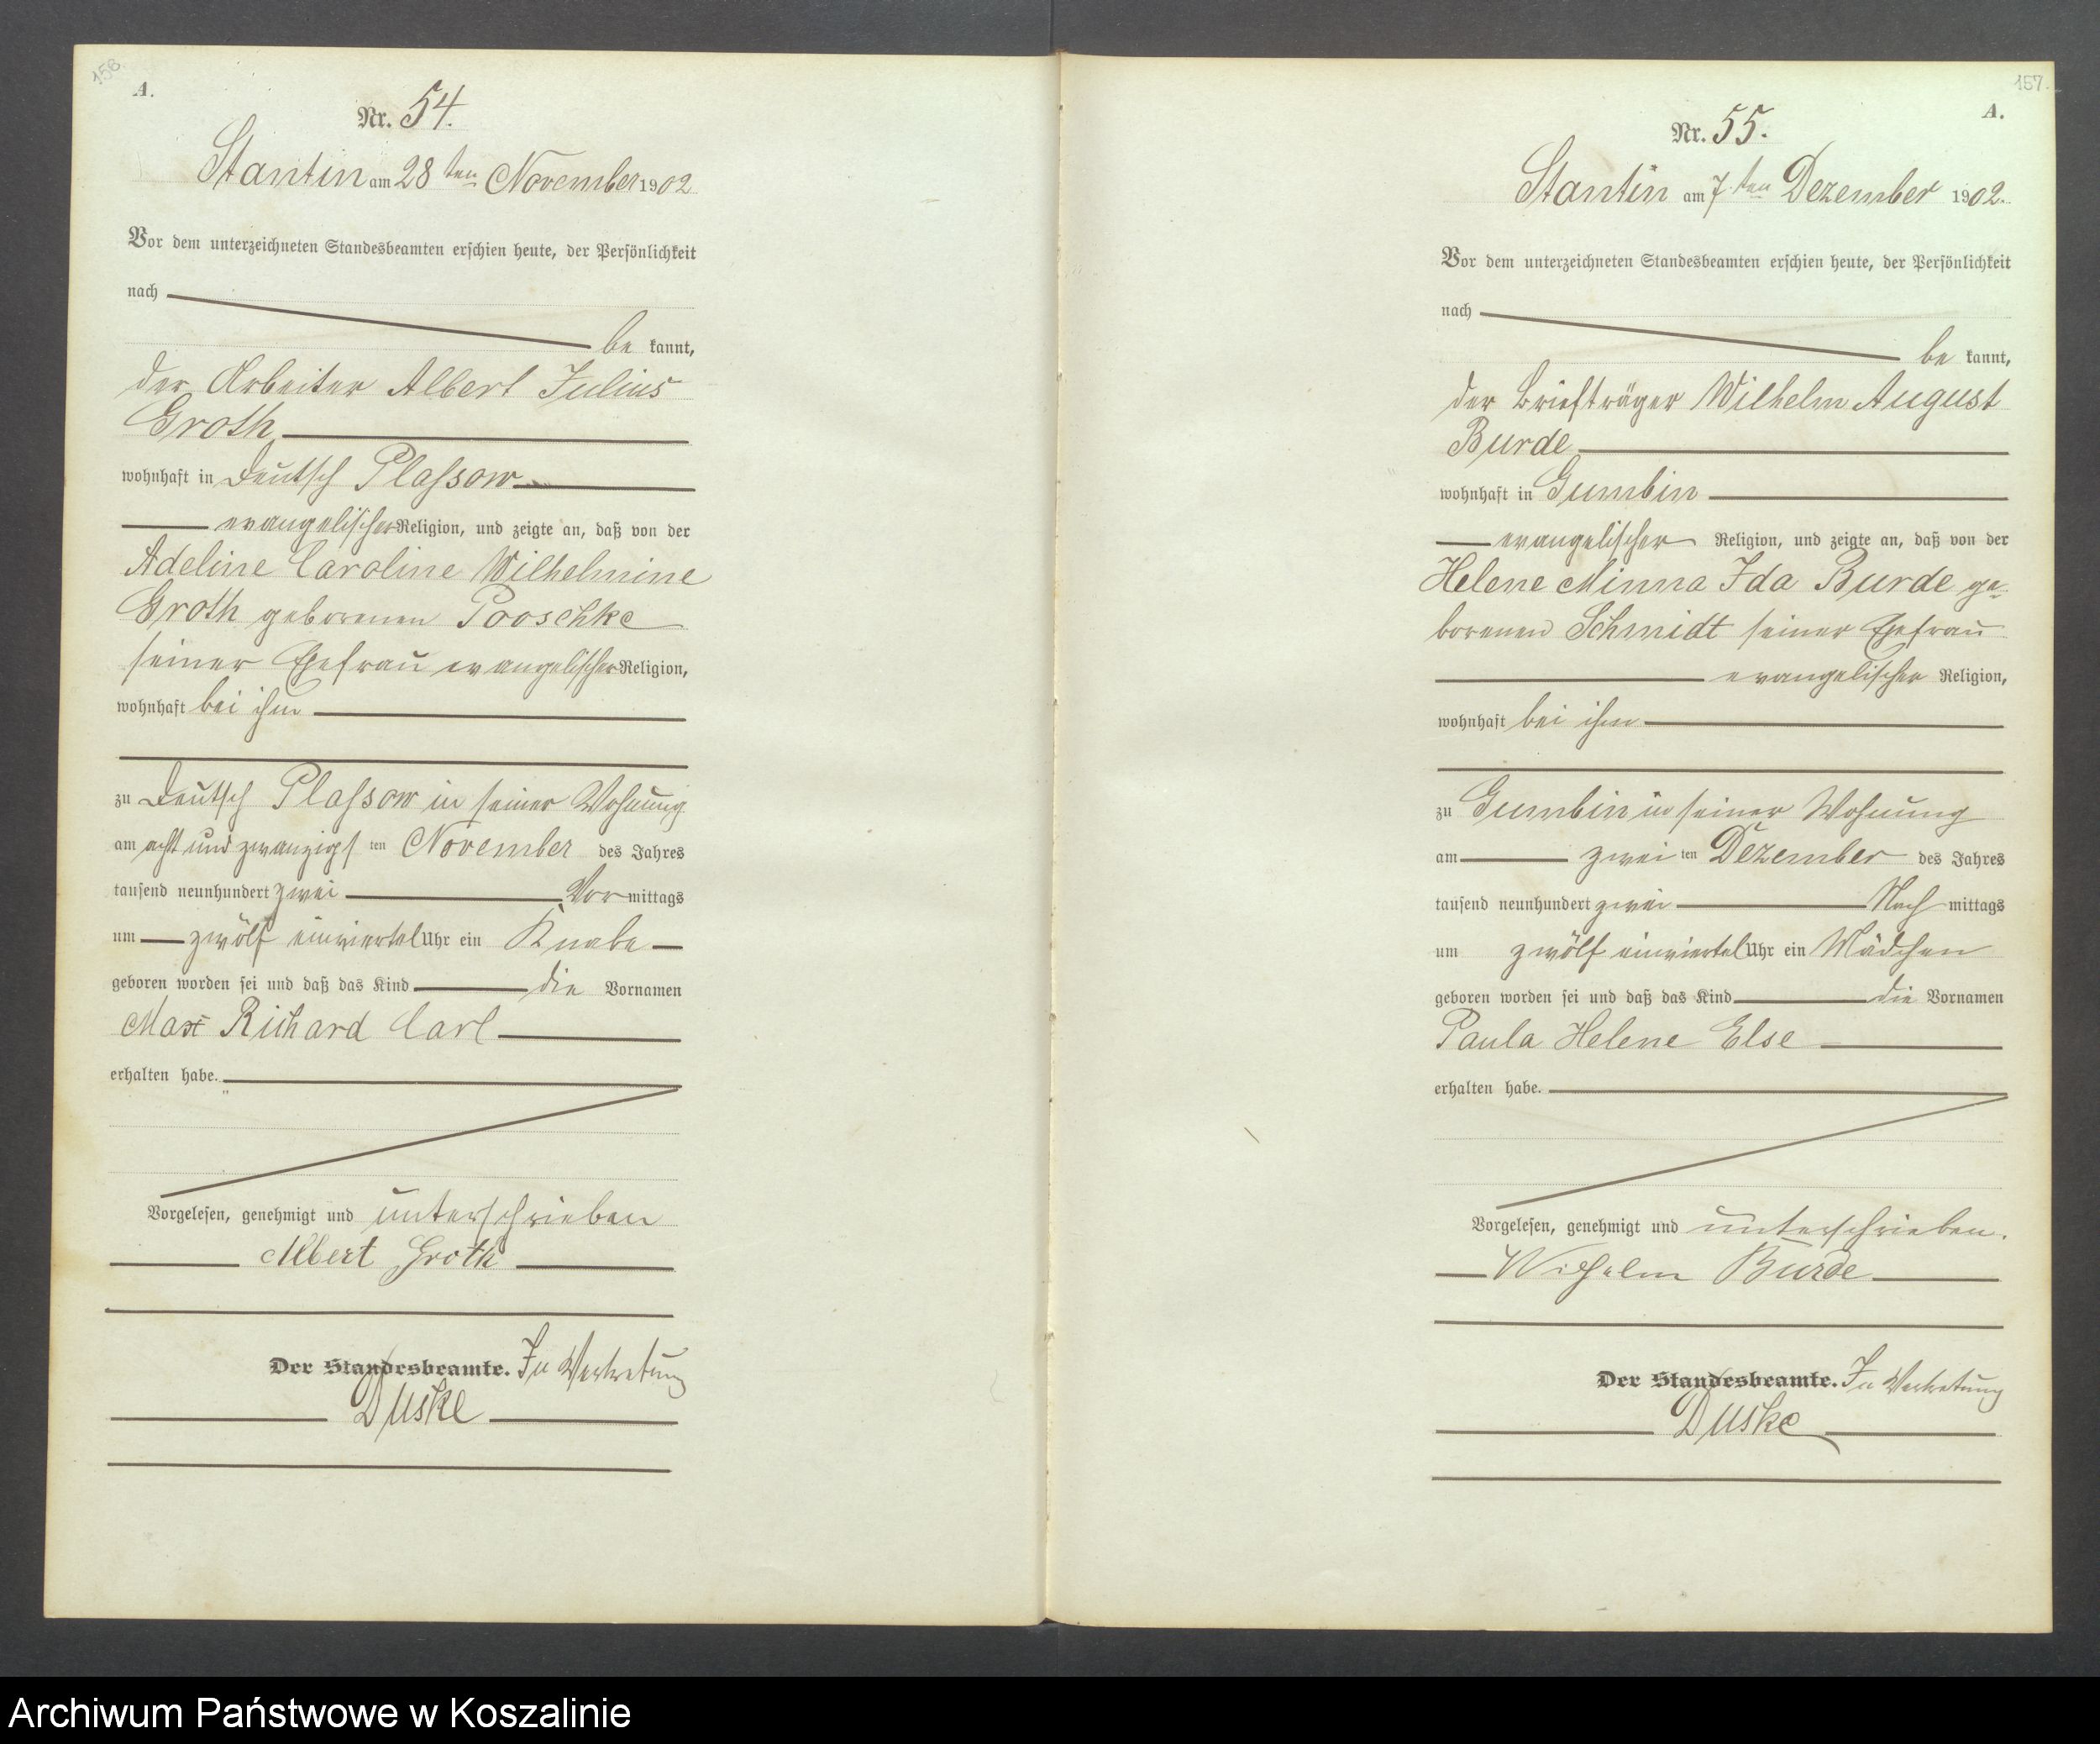 156.
A.
Nr. 54.
Stantin am 28ten November 1902
Vor dem unterzeichneten Standesbeamten erschien heute, der Persönlichkeit
nach
be kannt,
der Arbeiter Albert Julius
Groth
wohnhaft in Deutsch Plassow
evangelischer Religion, und zeigte an, daß von der
Adeline Caroline Wilhelmine
Groth geborenen Pooschke
seiner Ehefrau evangelischer Religion,
wohnhaft bei ihm
zu Deutsch Plassow in seiner Wohnung
am acht und zwanzigsten November des Jahres
tausend neunhundert zwei Vormittags
um zwölf einviertel Uhr ein Knabe
geboren worden sei und daß das Kind die Vornamen
Max Richard Carl
erhalten habe.
Vorgelesen, genehmigt und unterschrieben
Albert Groth
Der Standesbeamte. In Vertretung
Duske
157.
A.
Nr. 55.
Stantin am 7.ten Dezember 1902.
Vor dem unterzeichneten Standesbeamten erschien heute, der Persönlichkeit
nach
be kannt,
der Briefträger Wilhelm August
Burde
wohnhaft in Gumbin
evangelischer Religion, und zeigte an, daß von der
Helene Minna Ida Burde ge-
borenen Schmidt seiner Ehefrau
evangelischer Religion,
wohnhaft bei ihm
zu Gumbin in seiner Wohnung
am zwei ten Dezember des Jahres
tausend neunhundert zwei Nach mittags
um zwölf einviertel Uhr ein Mädchen
geboren worden sei und daß das Kind die Vornamen
Paula Helene Else
erhalten habe.
Vorgelesen, genehmigt und unterschrieben.
Wilhelm Burde
Der Standesbeamte. In Vertretung
Duske
Archiwum Państwowe w Koszalinie